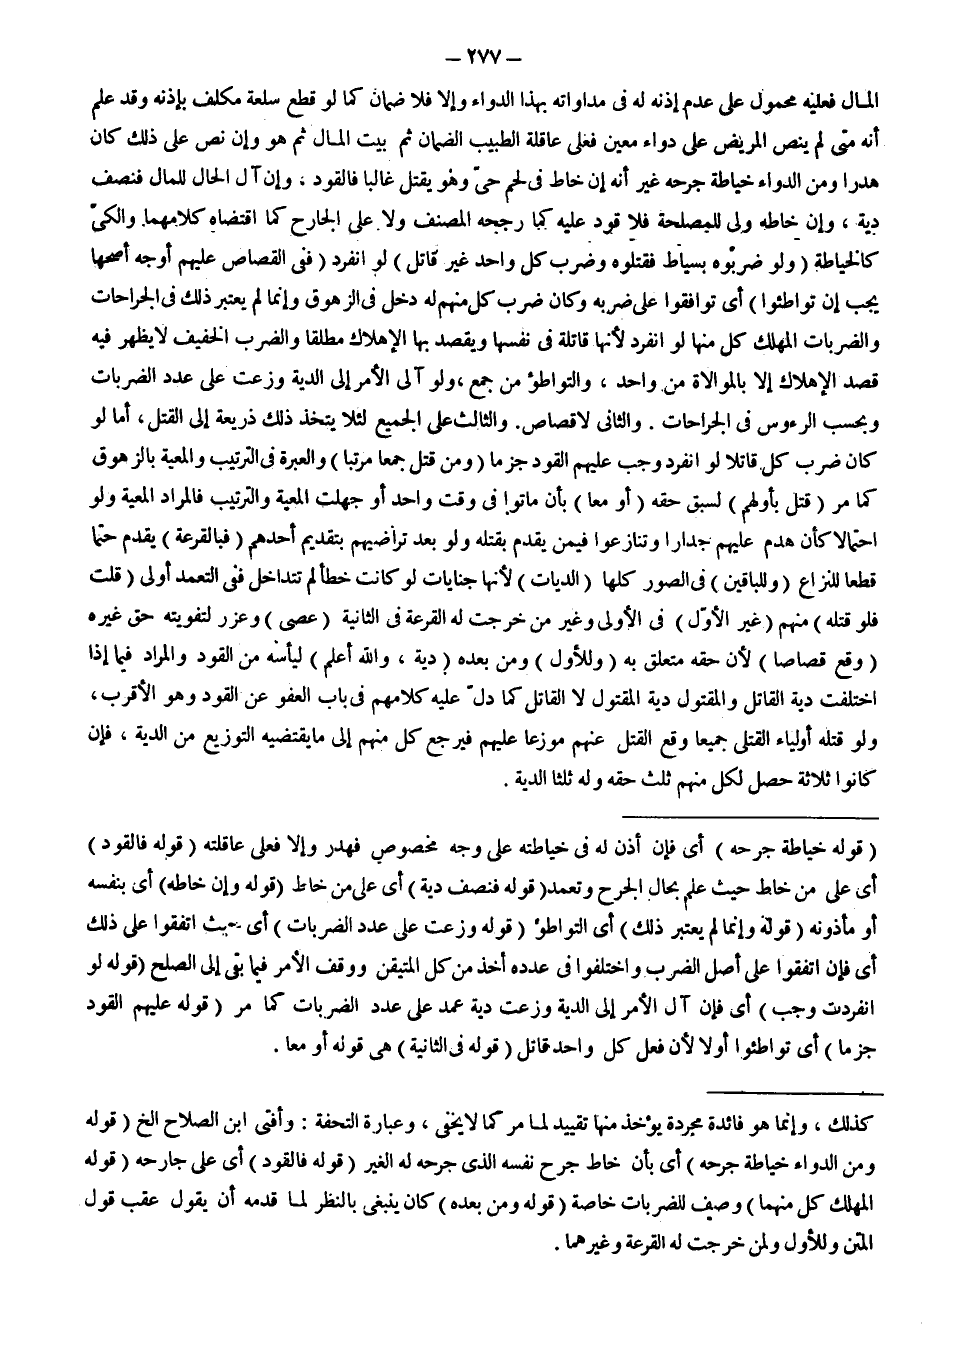 – ٢٧٧ –
المال فعليه محمول على عدم إذنه له فى مداواته بهذا الدواء وإلا فلا ضمان كما لو قطع سلعة مكلف بإذنه وقد علم
أنه متى لم ينص المريض على دواء معين فعلى عاقلة الطبيب الضمان ثم بيت المال ثم هو وإن نص على ذلك كان
هدرا ومن الدواء خياطة جرحه غير أنه إن خاط فى لحم حىّ وهو يقتل غالبا فالقود ، وإن آل الحال للمال فنصف
دية ، وإن خاطه ولى للمصلحة فلا قود عليه كما رجحه المصنف ولا على الجارح كما اقتضاه كلامهما والكىّ
كالخياطة ( ولو ضربوه بسياط فقتلوه وضرب كل واحد غير قاتل ) لو انفرد ( ففى القصاص عليهم أوجه أصحها
يجب إن تواطئوا ) أى توافقوا على ضربه وكان ضرب كل منهم له دخل فى الزهوق وإنما لم يعتبر ذلك فى الجراحات
والضربات المهلك كل منها لو انفرد لأنها قاتلة فى نفسها ويقصد بها الإهلاك مطلقا والضرب الخفيف لا يظهر فيه
قصد الإهلاك إلا بالموالاة من واحد ، والتواطؤ من جمع ، ولو آلى الأمر إلى الدية وزعت على عدد الضربات
وبحسب الرءوس فى الجراحات . والثانى لاقصاص . والثالث على الجميع لئلا يتخذ ذلك ذريعة إلى القتل ، أما لو
كان ضرب كل قاتلا لو انفرد وجب عليهم القود جزما ( ومن قتل جمعا مرتبا ) والعبرة فى الترتيب والمعية بالزهوق
كما مر ( قتل بأولهم ) لسبق حقه ( أو معا ) بأن ماتوا فى وقت واحد أو جهلت المعية والترتيب فالمراد المعية ولو
احتمالا كأن هدم عليهم جدارا وتنازعوا فيمن يقدم بقتله ولو بعد تراضيهم بتقديم أحدهم ( فبالقرعة ) يقدم حتما
قطعا للنزاع ( وللباقين ) فى الصور كلها ( الديات ) لأنها جنايات لو كانت خطأ لم تتداخل ففى التعمد أولى ( قلت
فلو قتله ) منهم ( غير الأوّل ) فى الأولى وغير من خرجت له القرعة فى الثانية ( عصى ) وعزر لتفويته حق غيره
( وقع قصاصا ) لأن حقه متعلق به ( وللأول ) ومن بعده ( دية ، والله أعلم ) ليأسه من القود والمراد فيما إذا
اختلفت دية القاتل والمقتول دية المقتول لا القاتل كما دلّ عليه كلامهم فى باب العفو عن القود وهو الأقرب ،
ولو قتله أولياء القتلى جميعا وقع القتل عنهم موزعا عليهم فيرجع كل منهم إلى مايقتضيه التوزيع من الدية ، فإن
كانوا ثلاثة حصل لكل منهم ثلث حقه وله ثلثا الدية .
( قوله خياطة جرحه ) أى فإن أذن له فى خياطته على وجه مخصوص فهدر وإلا فعلى عاقلته ( قوله فالقود )
أى على من خاط حيث علم بحال الجرح وتعمد ( قوله فنصف دية ) أى على من خاط ( قوله وإن خاطه) أى بنفسه
أو مأذونه ( قوله وإنما لم يعتبر ذلك ) أى التواطؤ ( قوله وزعت على عدد الضربات ) أى حيث اتفقوا على ذلك
أى فإن اتفقوا على أصل الضرب واختلفوا فى عدده أخذ من كل المتيقن ووقف الأمر فيما بقى إلى الصلح (قوله لو
انفردت وجب ) أى فإن آل الأمر إلى الدية وزعت دية عمد على عدد الضربات كما مر ( قوله عليهم القود
جزما ) أى تواطئوا أولا لأن فعل كل واحد قاتل ( قوله فى الثانية ) هى قوله أو معا .
كذلك ، وإنما هو فائدة مجردة يؤخذ منها تقييد لما مر كما لايخفى ، وعبارة التحفة : وأفتى ابن الصلاح الخ ( قوله
ومن الدواء خياطة جرحه ) أى بأن خاط جرح نفسه الذى جرحه له الغير ( قوله فالقود ) أى على جارحه ( قوله
المهلك كل منهما ) وصف للضربات خاصة ( قوله ومن بعده ) كان ينبغى بالنظر لما قدمه أن يقول عقب قول
المتن وللأول ولمن خرجت له القرعة وغيرهما .